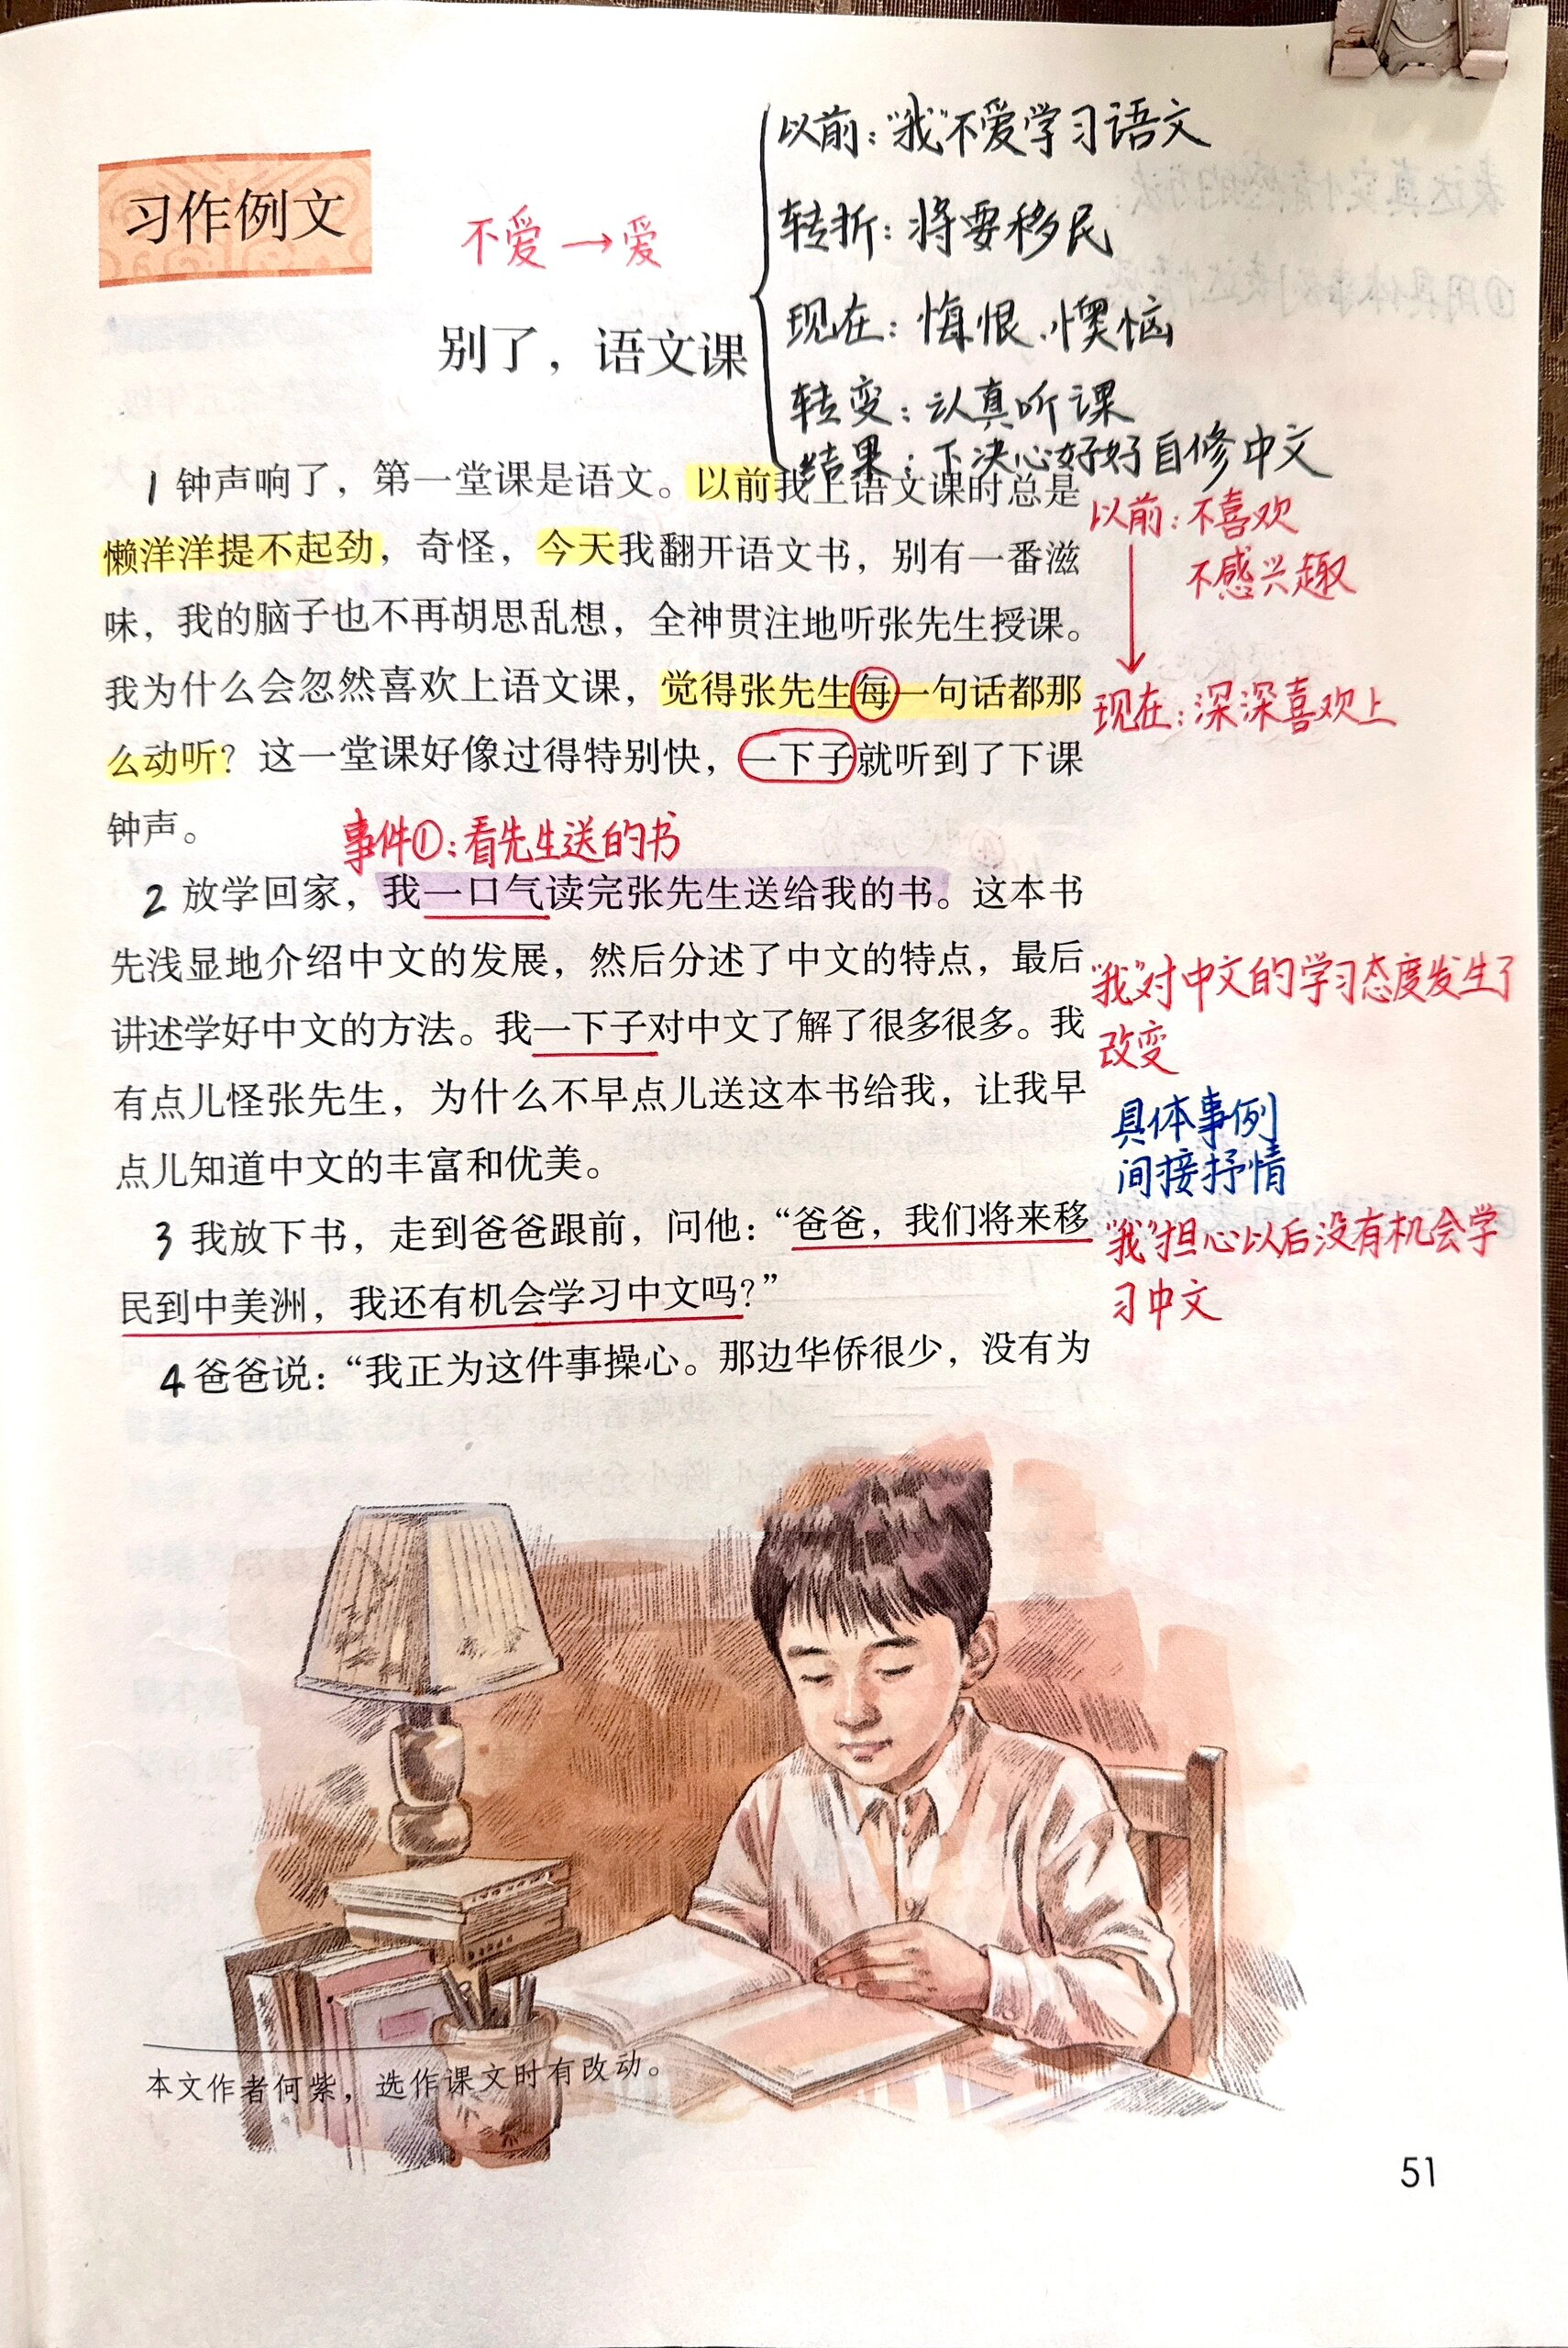 以前："我"不爱学习语文
习作例文
不爱→爱
转折：将要移民
别了，语文课
现在：悔恨、懊恼
转变：认真听课
结果：下决心好好自修中文
1 钟声响了，第一堂课是语文。以前我上语文课时总是
以前：不喜欢
懒洋洋提不起劲，奇怪，今天我翻开语文书，别有一番滋
不感兴趣
味，我的脑子也不再胡思乱想，全神贯注地听张先生授课。
我为什么会忽然喜欢上语文课，觉得张先生每一句话都那
现在：深深喜欢上
么动听？这一堂课好像过得特别快，一下子就听到了下课
钟声。
事件①：看先生送的书
2 放学回家，我一口气读完张先生送给我的书。这本书
先浅显地介绍中文的发展，然后分述了中文的特点，最后
"我"对中文的学习态度发生了
讲述学好中文的方法。我一下子对中文了解了很多很多。我
改变
有点儿怪张先生，为什么不早点儿送这本书给我，让我早
具体事例
点儿知道中文的丰富和优美。
间接抒情
3 我放下书，走到爸爸跟前，问他：“爸爸，我们将来移
"我"担心以后没有机会学
民到中美洲，我还有机会学习中文吗？”
习中文
4 爸爸说：“我正为这件事操心。那边华侨很少，没有为
本文作者何紫，选作课文时有改动。
51